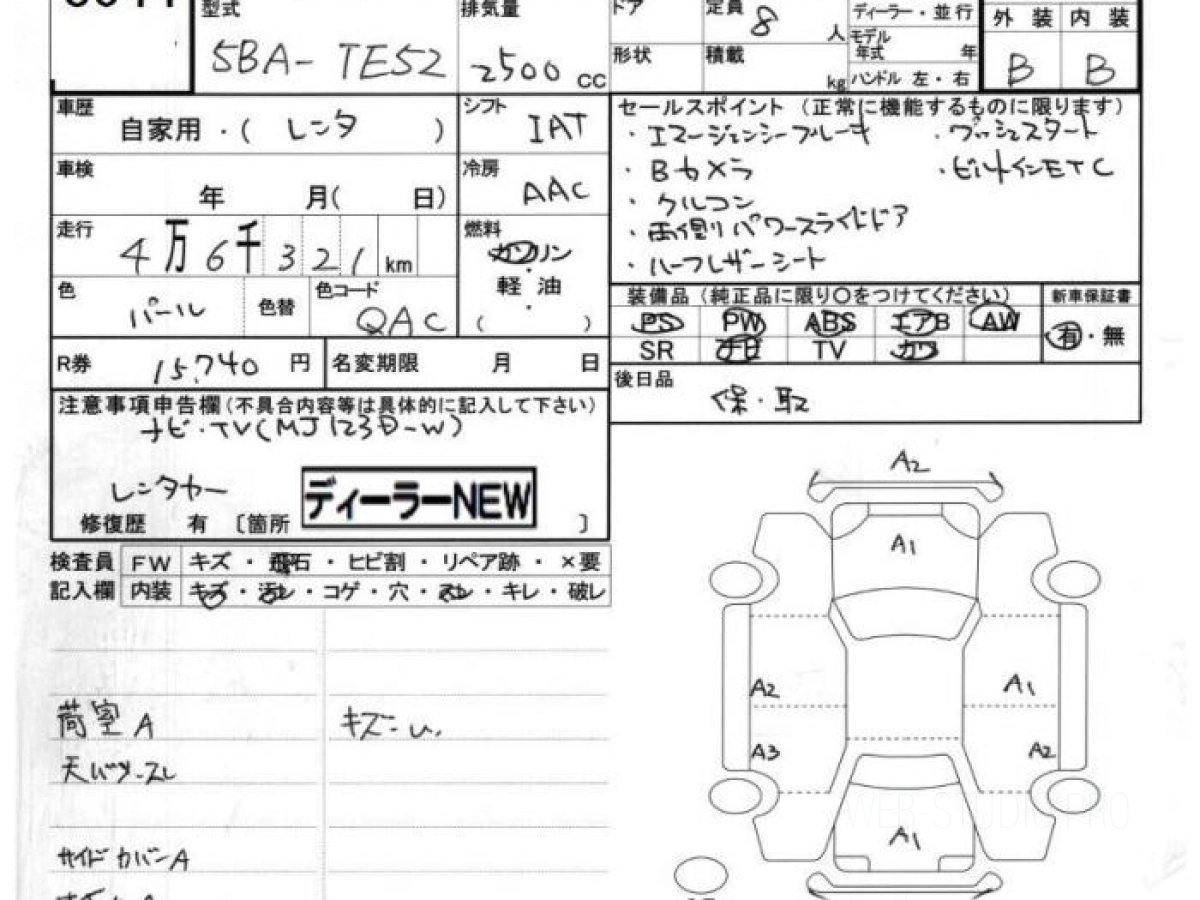 型式 排気量 ドア 定員 8 人 ディーラー・並行 外装 内装
5BA-TE52 2500 CC 形状 積載 kg モデル年式 年 B B
ハンドル 左・右
車歴 自家用・( レンタ ) シフト IAT
車検 年 月( 日) 冷房 AAC
走行 4万6千321 km 燃料 ガソリン
軽油
( ・ )
色 パール 色替 色コード QAC
R券 15,740 円 名変期限 月 日
セールスポイント (正常に機能するものに限ります)
・エマージェンシーブレーキ ・プッシュスタート
・Bカメラ ・ビルトインETC
・クルコン
・両側パワースライドドア
・ハーフレザーシート
装備品(純正品に限り○をつけてください) 新車保証書
PS PW ABS エアB AW 有・無
SR ナビ TV カワ
後日品 保・取
注意事項申告欄(不具合内容等は具体的に記入して下さい)
ナビ・TV(MJ123D-W)
レンタカー ディーラーNEW
修復歴 有 〔箇所 〕
検査員 FW キズ・飛石・ヒビ割・リペア跡・×要
記入欄 内装 キズ・汚レ・コゲ・穴・スレ・キレ・破レ
荷室A キズ
天バリ スレ
サイドカバーA
A2
A1
A2 A1
A3 A2
A1
WEB-STUDIO.PRO